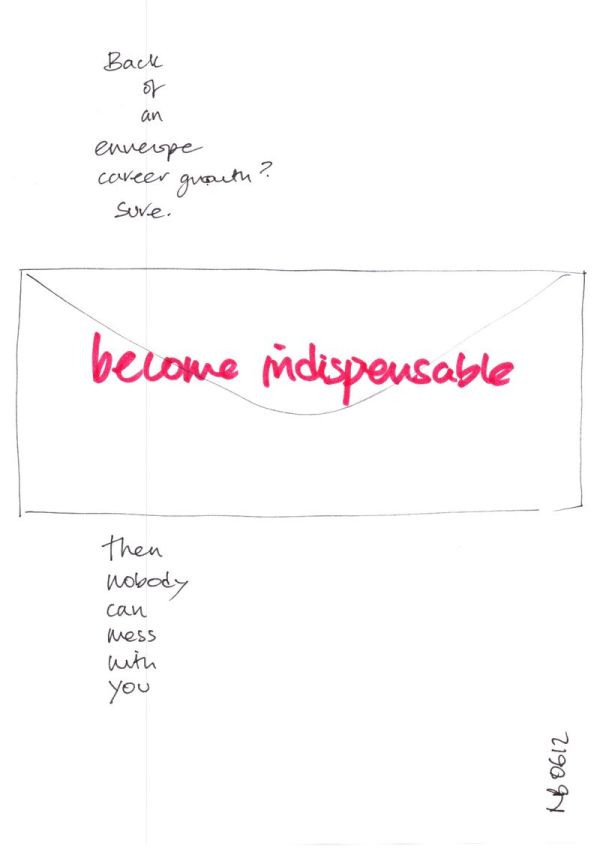 Back
of
an
envelope
career growth?
Sure.
become indispensable
then
nobody
can
mess
with
you
NB 0612